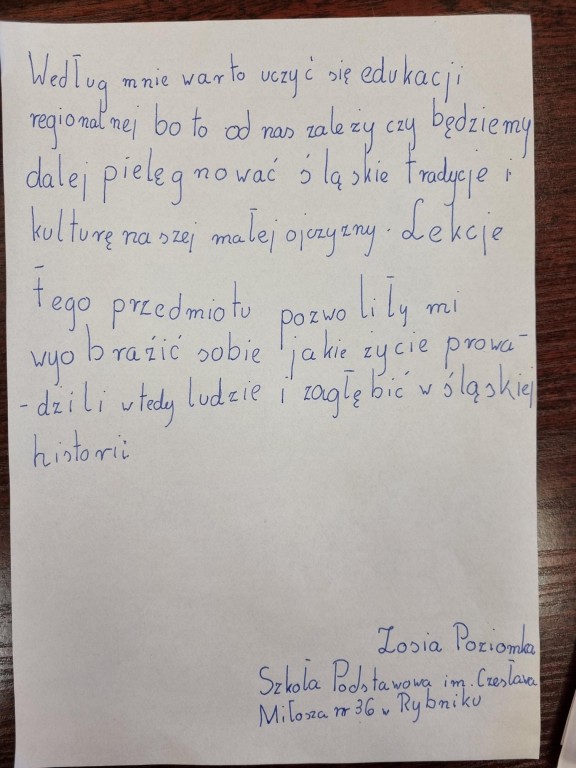 Według mnie warto uczyć się edukacji
regionalnej bo to od nas zależy czy będziemy
dalej pielęgnować śląskie tradycje i
kulturę naszej małej ojczyzny. Lekcje
tego przedmiotu pozwoliły mi
wyobrazić sobie jakie życie prowa-
-dzili wtedy ludzie i zagłębić w śląskiej
historii
Zosia Poziomka
Szkoła Podstawowa im. Czesława
Miłosza nr 36 w Rybniku